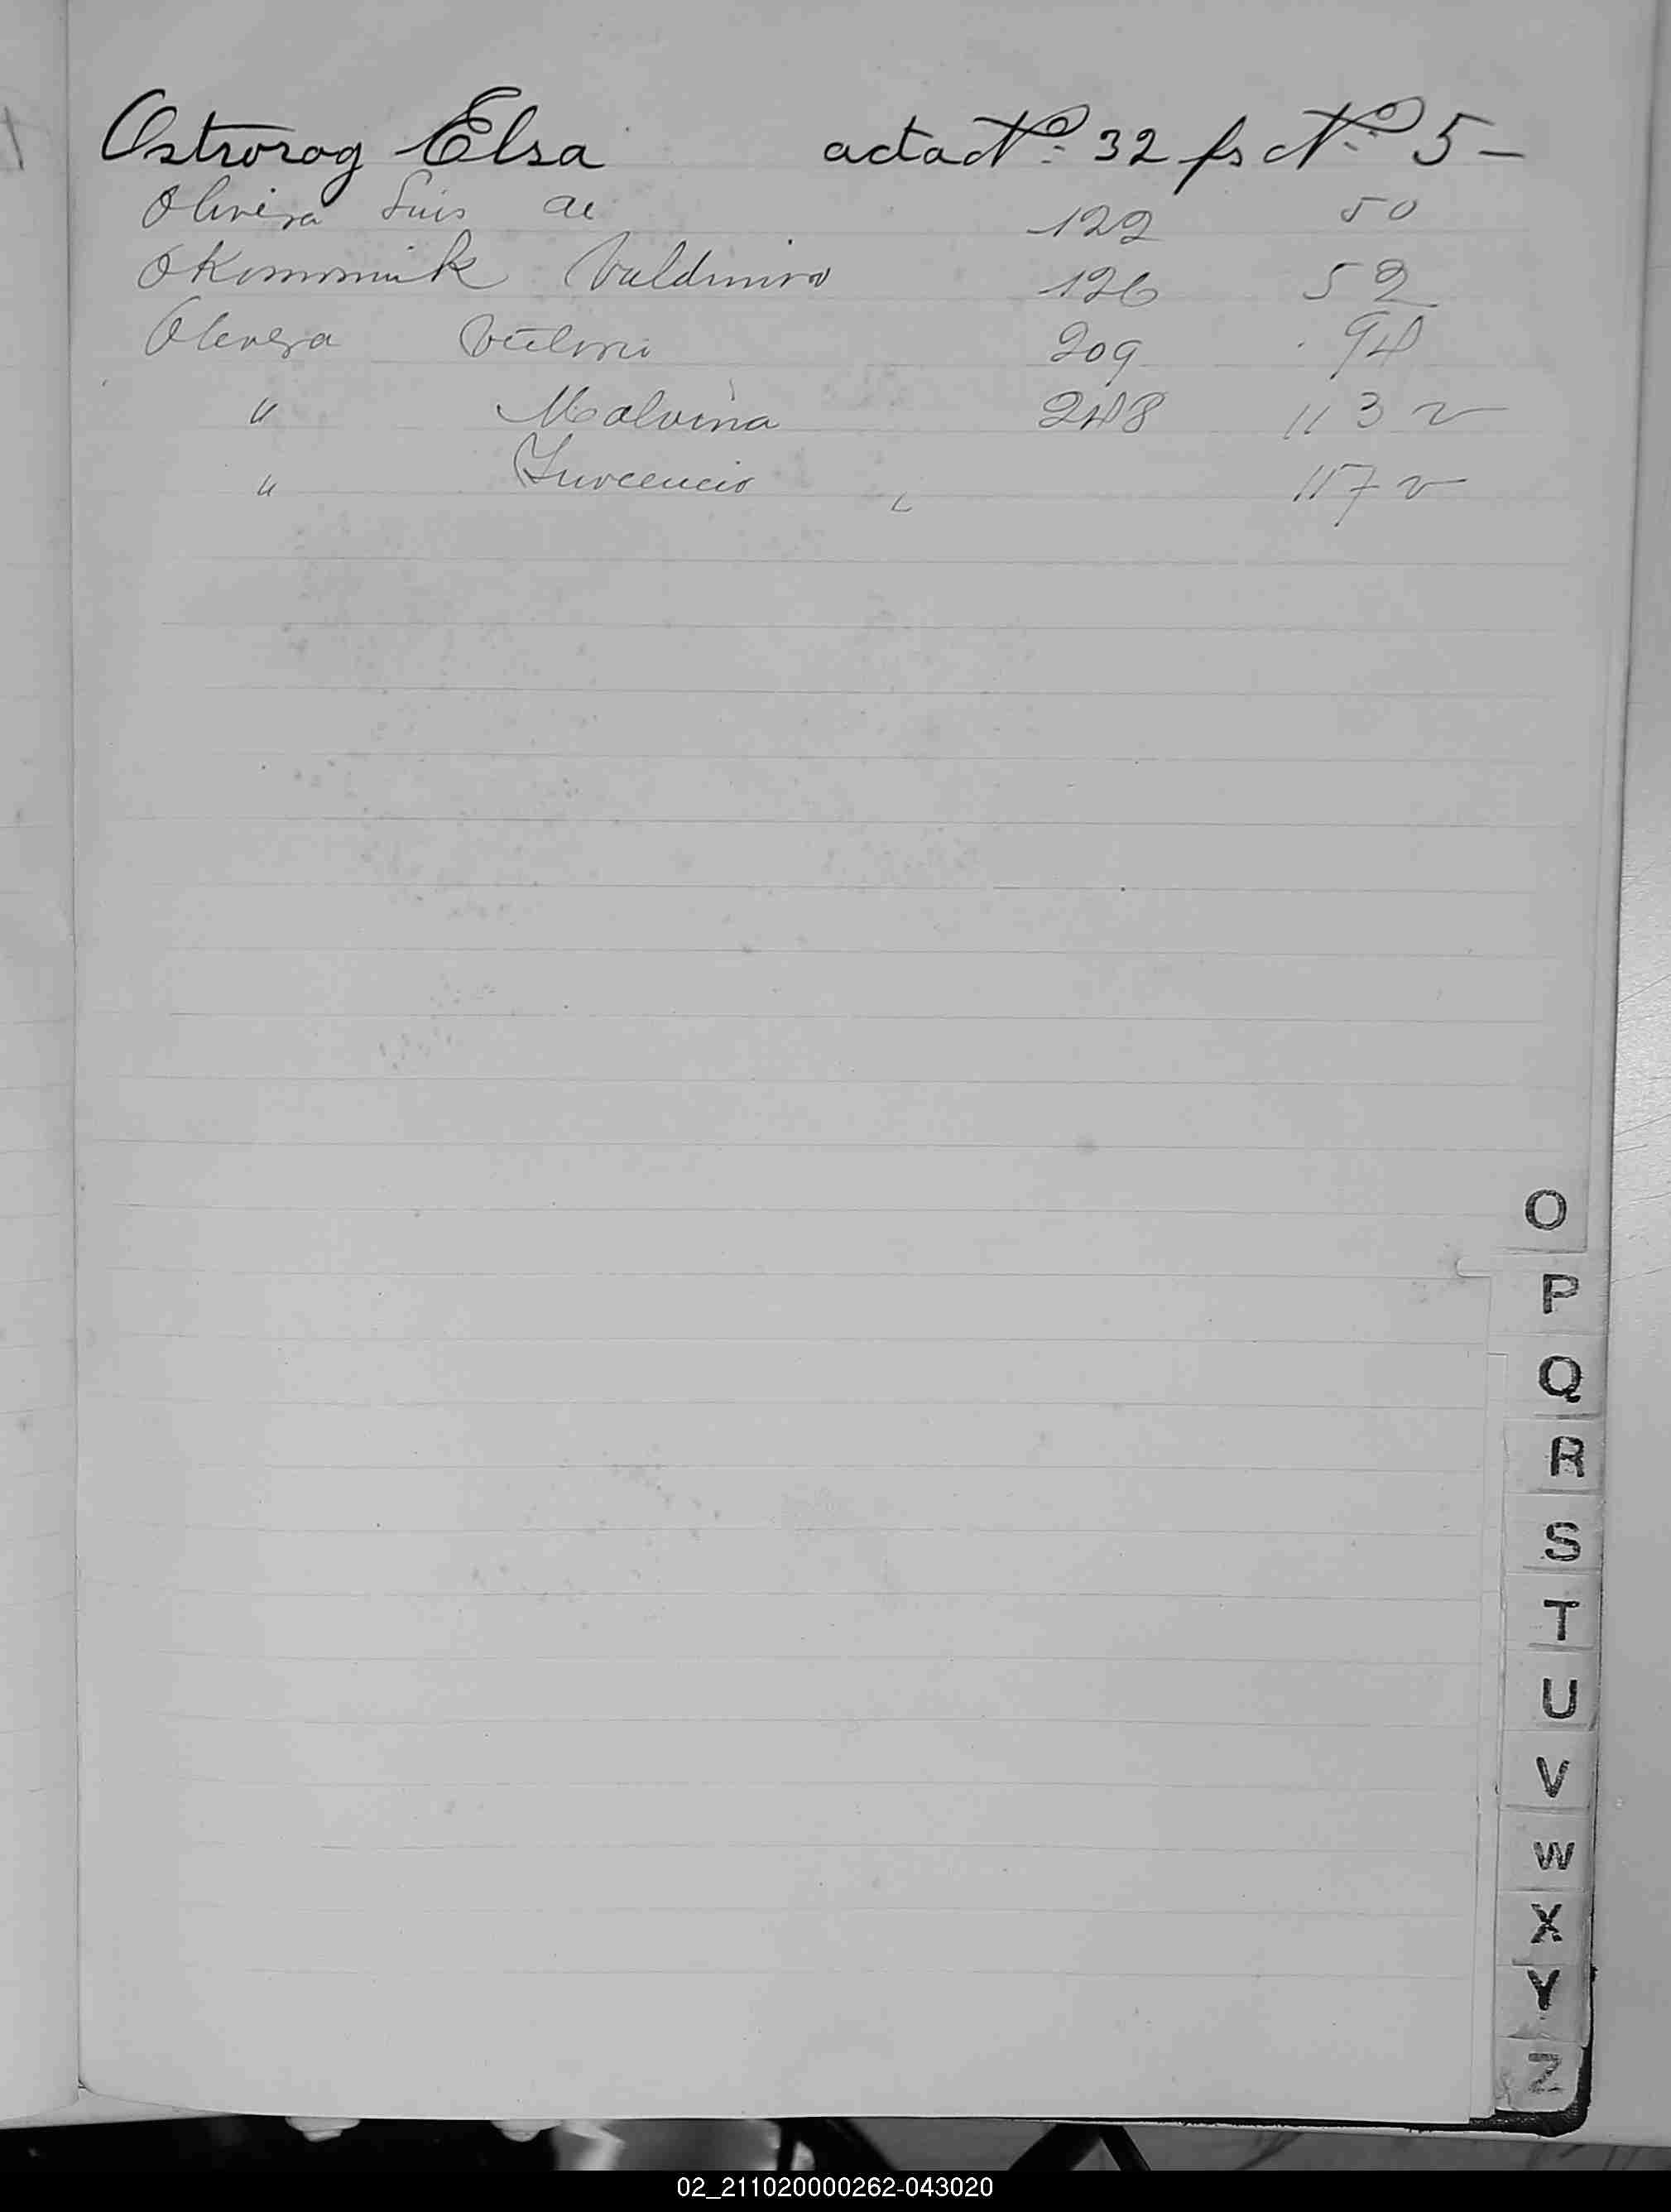 Ostrorog Elsa acta Nº 32 fs Nº 5-
Olivera Luis de 122 50
Okommiuk Valdimiro 126 52
Olivera 209 94
" Malvina 248 113 v
" Inocencio 117 v
O
P
Q
R
S
T
U
V
W
X
Y
Z
02_211020000262-043020